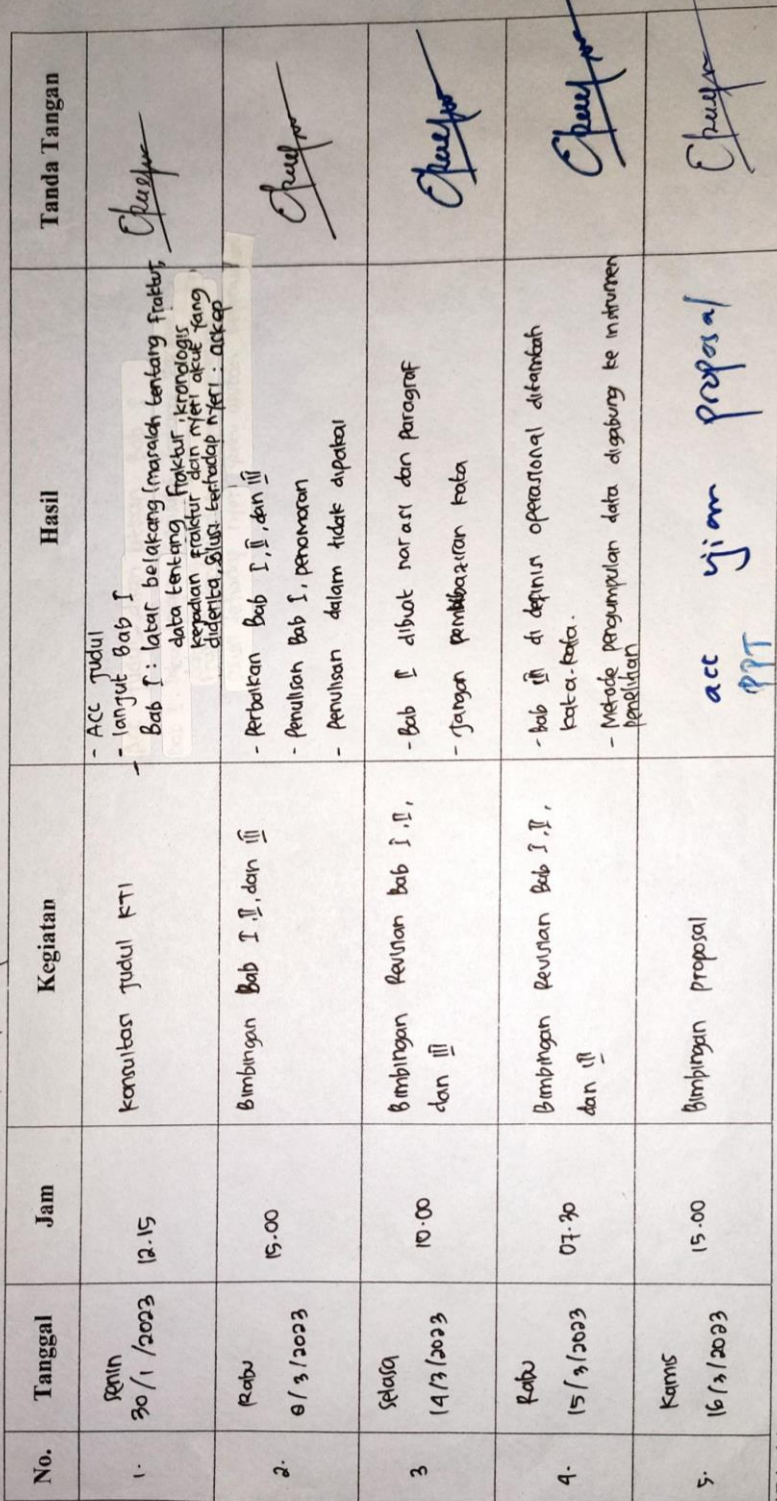 No. Tanggal Jam Kegiatan Hasil Tanda Tangan
1. Senin
30/1/2023 12.15 Konsultasi Judul KTI
- ACC Judul
- lanjut Bab I
Bab I : latar belakang (masalah tentang fraktur,
data tentang fraktur, kronologis
kejadian fraktur dan nyeri akut yang
diderita, solusi terhadap nyeri : askep
2. Rabu
8/3/2023 15.00 Bimbingan Bab I, II, dan III
- Perbaikan Bab I, II, dan III
- Penulisan Bab I, penomoran
- Penulisan dalam tidak dipakai
3 Selasa
14/3/2023 10.00 Bimbingan Revisian Bab I, II,
dan III
- Bab II dibuat narasi dan paragraf
- Jangan pembaziran kata
4. Rabu
15/3/2023 07.30 Bimbingan Revisian Bab I, II,
dan III
- Bab III di definisi operasional ditambah
kata-kata.
- Metode pengumpulan data digabung ke instrumen
penelitian
5. Kamis
16/3/2023 15.00 Bimbingan Proposal
acc ujian proposal
PPT